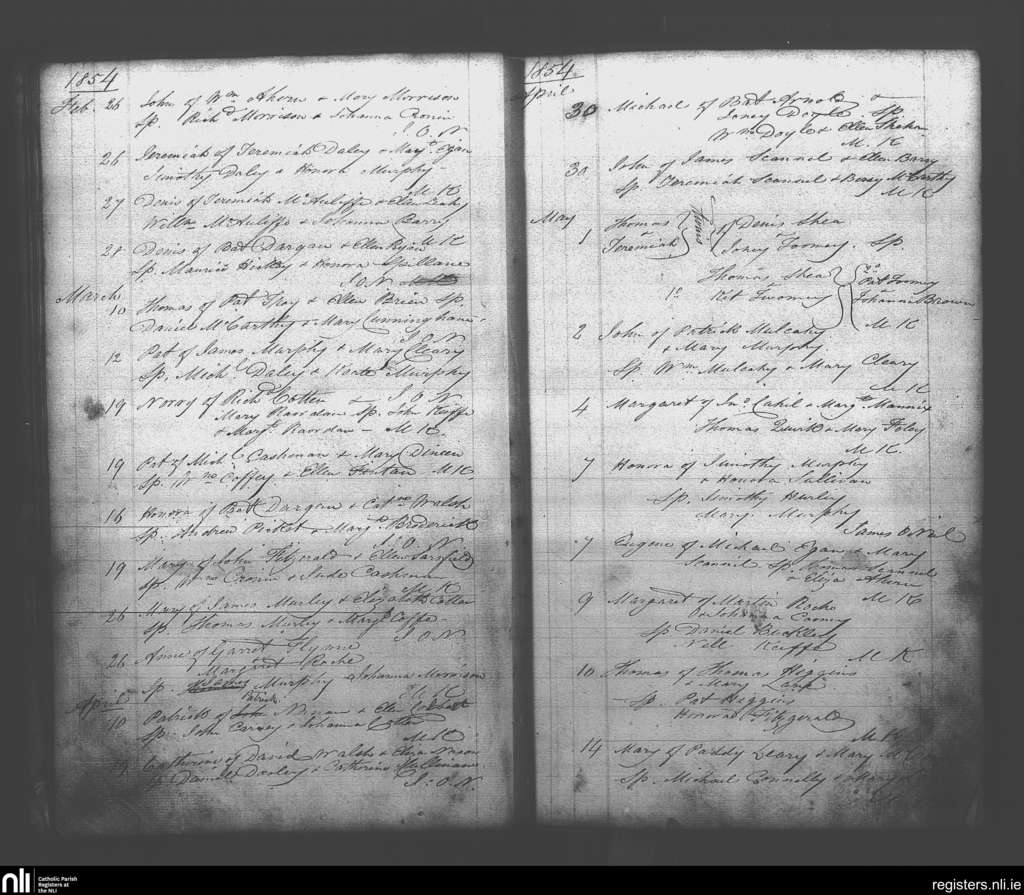 1854
Feb. 26 John of Wm Ahern & Mary Morrison
Sp. Richd Morrison & Johanna Cronin
J. O. N
26 Jeremiah of Jeremiah Daley & Margt. Egan
Timothy Daley & Honora Murphy
M K
27 Denis of Jeremiah McAuliffe & Ellen Leahy
Willm McAuliffe & Johanna Barry
M K
28 Denis of Bat Dargan & Ellen Ryan
Sp. Maurice Hickey & Honora Spillane
J. O. N
March 10 Thomas of Pat Troy & Ellen Brien Sp.
Daniel McCarthy & Mary Cunningham
J. O. N
12 Pat of James Murphy & Mary Cleary
Sp. Michl. Daley & Kate Murphy
J. O. N
19 of Richd Cotter &
Mary Reardan Sp. John Keiffe
& Margt. Reardan - M K.
19 Pat of Michl. Cashman & Mary Dineen
Sp. Wm Coffey & Ellen Fintan M K
16 Honora of Bat Dargan & Cathne Walsh
Sp. Andrew & Margt. Broderick
J. O. N
19 Mary of John Fitzgerald & Ellen Sarsfield
Sp. Wm Cronin & Jude Cashman
M K
26 Mary of James Murley & Elizabeth Cotter
Sp. Thomas Murley & Mary
J. O. N
26 Anne of Garret Flynne
Margaret Roche
Sp. Murphy & Johanna Morrison
M K
April 10 Patrick of Patrick & Ellen
Sp. John Carvey & Johanna Cotter
M K
Catherine of David Walsh & Eliza
Sp. Daniel Dooley & Catherine
J. O. N.
1854
April
30 Michael of Bat Arnold &
Joney Doyle Sp.
Wm Doyle & Ellen Shehan
M. K
30 John of James Scannel & Ellen Barry
Sp. Jeremiah Scannel & Bessy McCarthy
M K
May 1 Thomas & Jeremiah Twins of Denis Shea
Joney Toomey. Sp.
Thomas Shea 2o Pat Toomey
1o Kit Twomey Johanna Brown
M K
2 John of Patrick Mulcahy
& Mary Murphy
Sp. Wm Mulcahy & Mary Cleary
M K
4 Margaret of Jno Cahil & Margt Mannix
Thomas Quirk & Mary Foley
M K.
7 Honora of Timothy Murphy
& Honora Sullivan
Sp. Timothy Hurley
Mary Murphy
James O'Neil
7 Eugene of Michael Egan & Mary
Scannel Sp. Scannel
& Eliza Ahern
M K
9 Margaret of Martin Roche
& Johanna Cooney
Sp Daniel Buckley
Nell Keiffe
M K
10 Thomas of Thomas Higgins
& Mary Lane
Sp. Pat Higgins
Honora Fitzgerald
M K
14 Mary of Paddy Leary & Mary
Sp. Michael Connelly & Mary
nli
Catholic Parish
Registers at
the NLI
registers.nli.ie